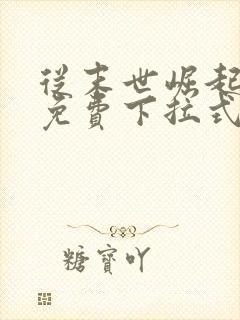 從末世崛起
免費下拉式
糖寶吖